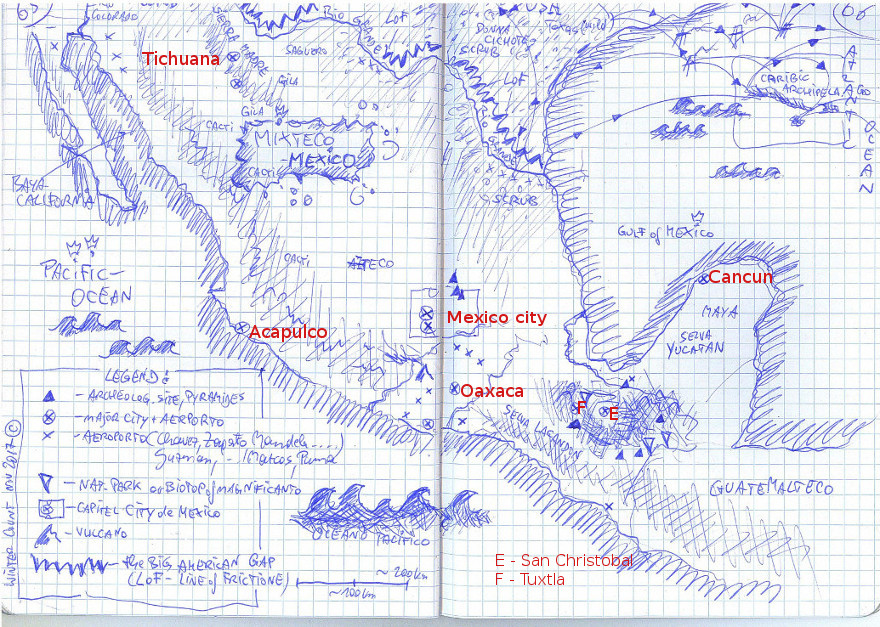 COLORADO
RIO GRANDE
LOF
SIERRA MADRE
SAGUERO
GILA
GILA
CACTI
MIXTECO
-MEXICO
CACTI
Tichuana
BAYA-
CALIFORNIA
PACIFIC-
OCEAN
CACTI
AZTECO
Acapulco
DONNA
CICHOTA
SCRUB
LOF
SCRUB
CARIBIC
ARCHIPELAGO
ATLANTIC
OCEAN
GULF of MEXICO
Cancun
MAYA
SELVA
YUCATAN
Mexico city
Oaxaca
F
E
SELVA LACANDON
GUATEMALTECO
LEGEND:
- ARCHEOLOG. SITE, PYRAMIDES
- MAJOR CITY + AERPORTO
- AEROPORTO (Chavez, Zapato Mandela ....)
Guzman, .. Marcos Puma
- NAT. PARK or BIOTOP of MAGNIFICANTO
- CAPITEL CITY de MEXICO
- VULCANO
- the BIG AMERICAN GAP
(LOF - LINE of FRICTIONE)
OCEANO PACIFICO
~ 200 km
~ 100 km
WINTER COUNT NOV 2017 ©
E - San Christobal
F - Tuxtla